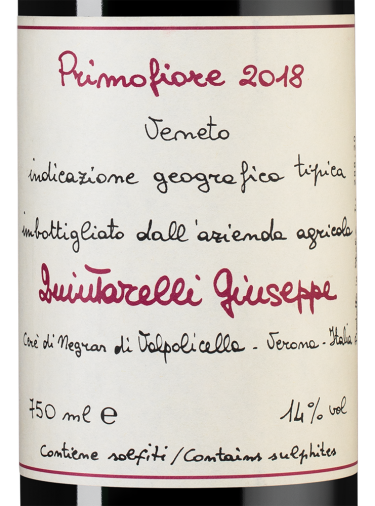 Primofiore 2018
Veneto
indicazione geografica tipica
imbottigliato dall'azienda agricola
Quintarelli Giuseppe
Cerè di Negrar di Valpolicella - Verona - Italia
750 ml e
14% vol
Contiene solfiti / Contains sulphites